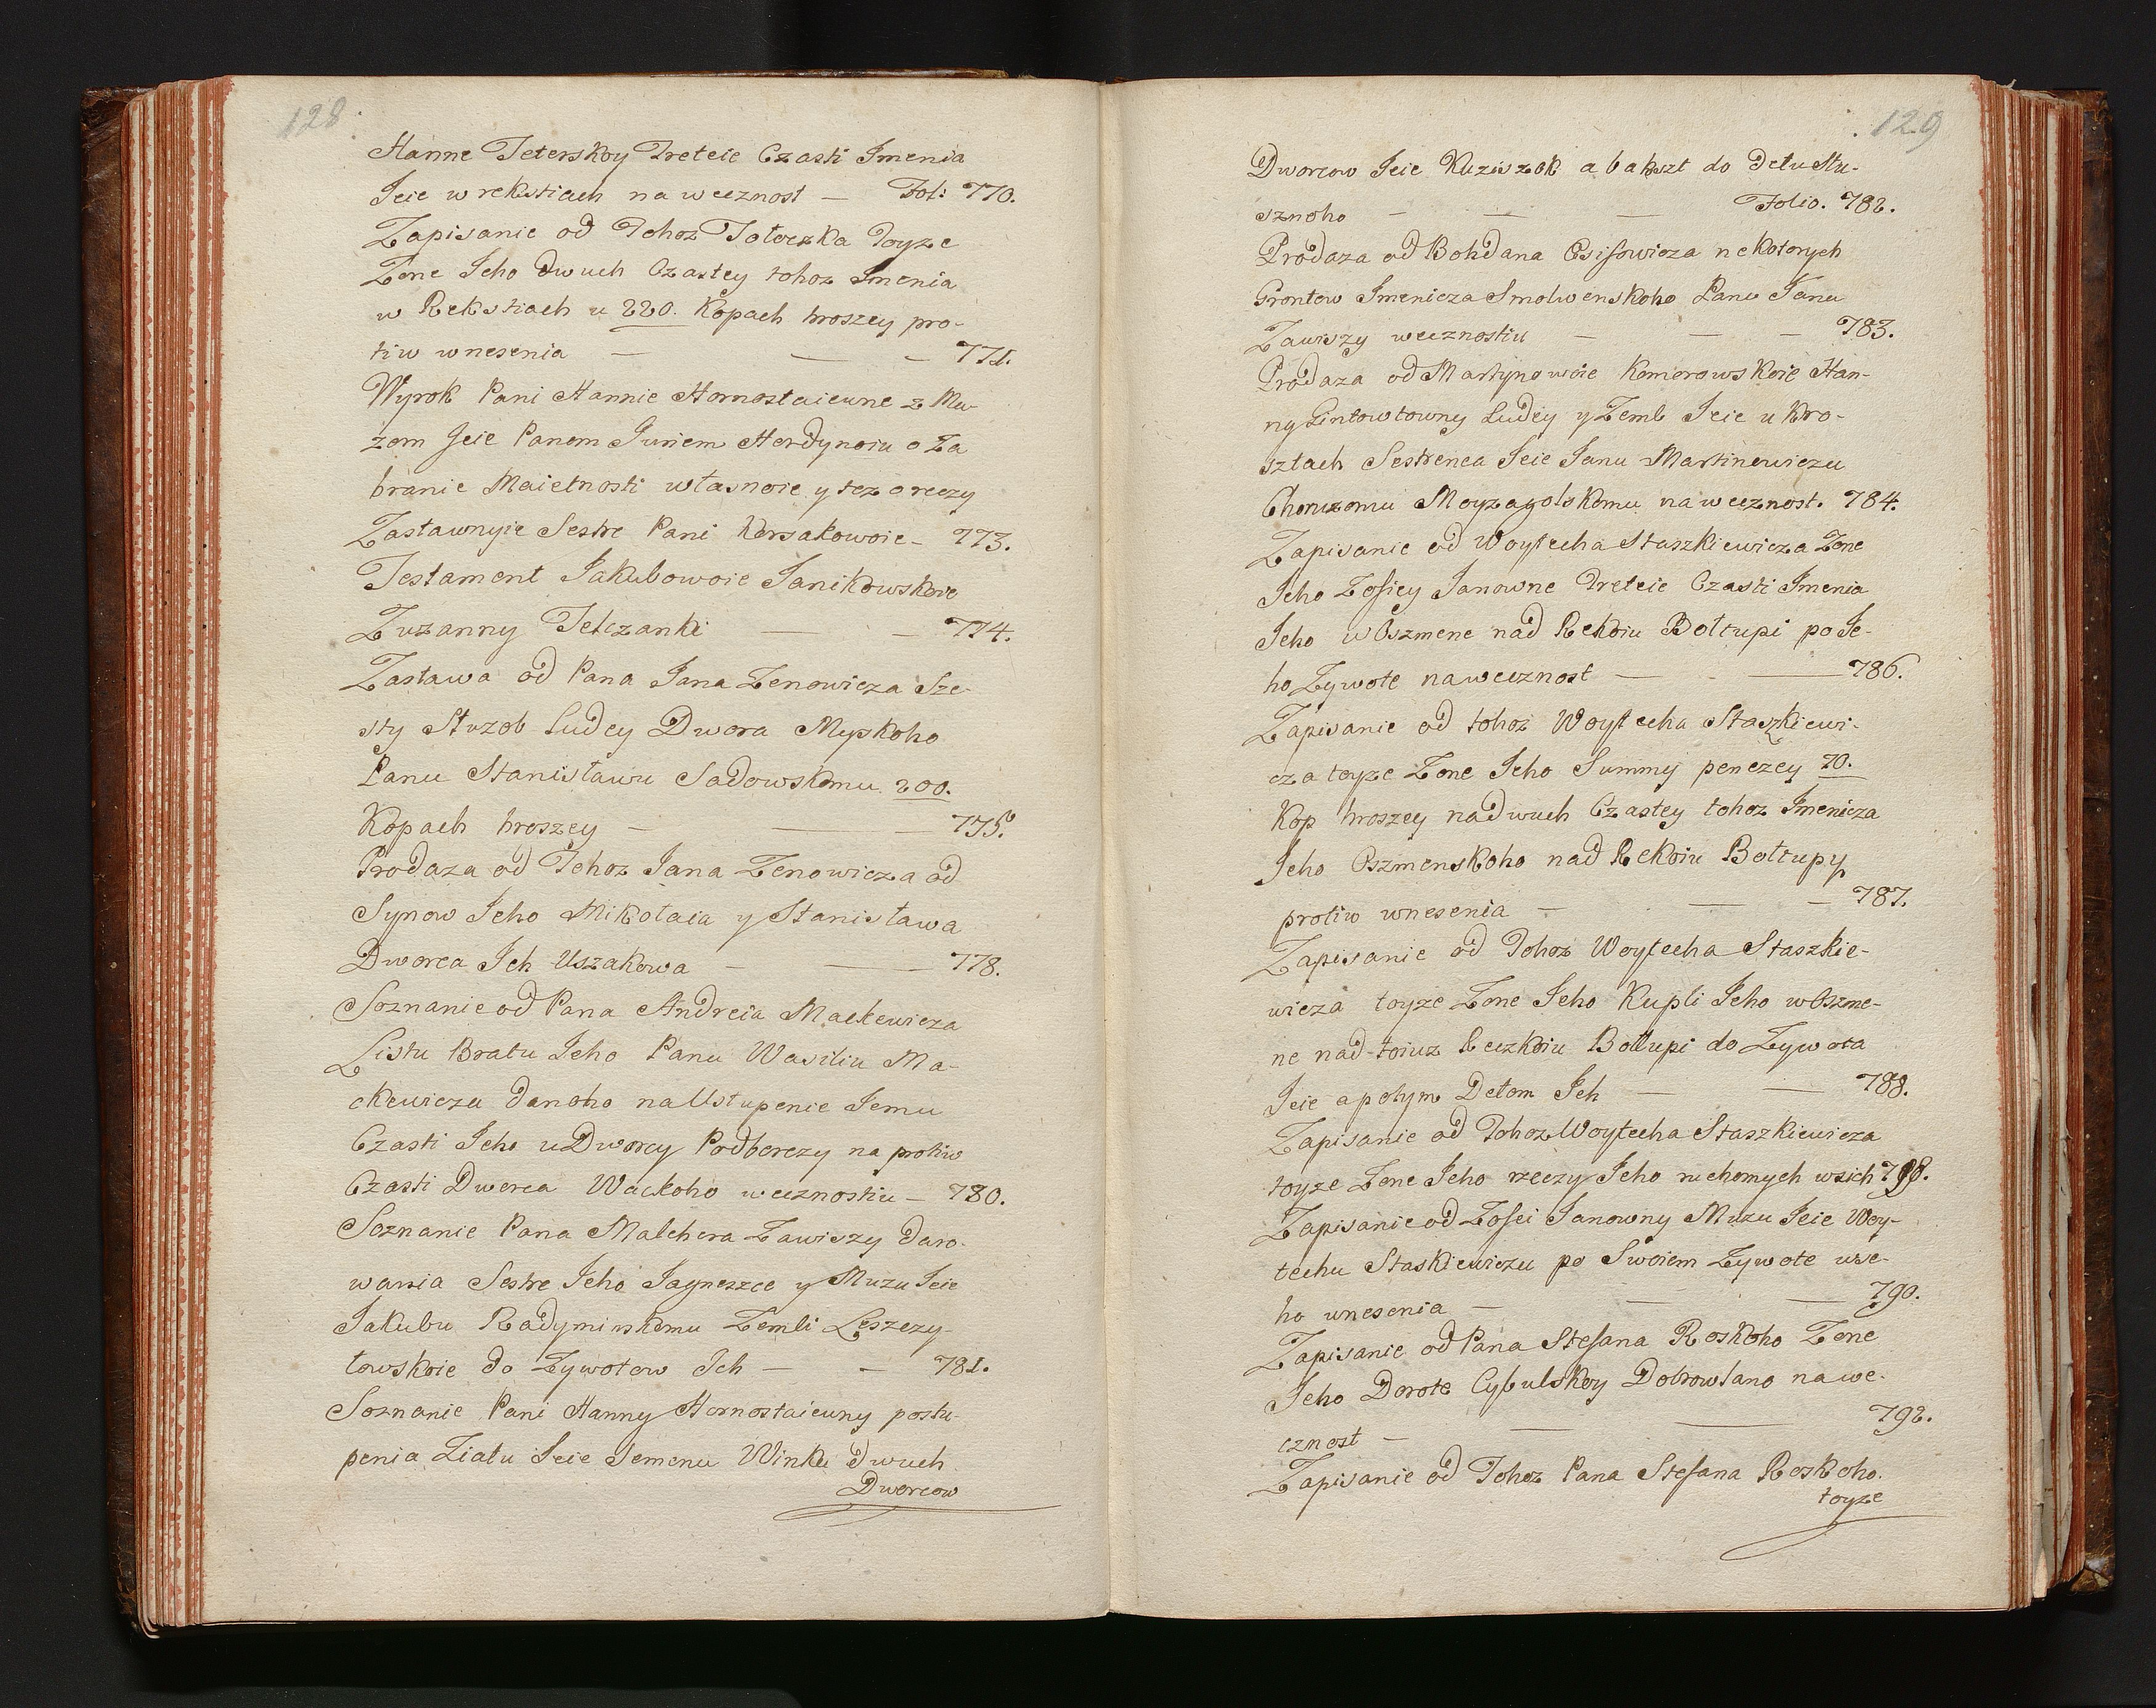 128
Hanne Teterskoy Treteie Czasti Imenia
Jeie w rekstiach na wecznost — Fol: 770.
Zapisanie od Tohoz Toloczka Toyze
Zene Jeho dwuch Czastey tohoz Imenia
w Rekstiach u 220. Kopach hroszey pro-
tiw wnesenia — — — 771.
Wyrok Pani Hannie Hornostaiewne z Mu-
zom Jeie Panom Juriem Hordynoiu o Za
branie Maietnosti własnoie y tez o reczy
Zastawnyie Sestre Pani Korsakowoie — 773.
Testament Jakubowoie Janikowskoie
Zuzanny Telczanki — — 774.
Zastawa od Pana Jana Zenowicza Sze-
sty Sluzob Ludey Dwora Mypskoho
Panu Stanisławu Sadowskomu 200.
Kopach hroszey — — — 775.
Prodaza od Tohoz Jana Zenowicza od
Synow Jeho Mikołaia y Stanisława
Dworca Ich Uszakowa — — 778.
Soznanie od Pana Andreia Mackewicza
Listu Bratu Jeho Panu Wasiliu Ma-
ckewiczu danoho na Ustupenie Jemu
Czasti Jeho u Dworcy Podberezy na protiw
Czasti Dworca Wackoho wecznostiu — 780.
Soznanie Pana Malchera Zawiszy daro-
wania Sestre Jeho Jagneszce y Muzu Jeie
Jakubu Radyminskomu Zemli Leszczy-
łowskoie do Zywotow Ich — — 781.
Soznanie Pani Hanny Hornostaiewny postu-
penia Ziatu Jeie Semenu Winku dwuch
Dworcow
129
Dworcow Jeie Kuziszok a bakszt do detu Slu-
sznoho — — — Folio. 782.
Prodaza od Bohdana Osisowicza nekotorych
Grontow Imenicza Smolwenskoho Panu Janu
Zawiszy wecznostiu — — — 783.
Prodaza od Martynowoie Komorowskoie Han-
ny Gintowtowny Ludey y Zeml Jeie u Kro-
sztach Sestrenca Jeie Janu Martinowiczu
Choruzomu Moyzagolskomu na wecznost. 784.
Zapisanie od Woytecha Staszkiewicza Zone
Jeho Zofiey Janowne Treteie Czasti Imenia
Jeho w Oszmene nad Rekoiu Bołtupi po Je-
ho Zywote na wecznost — — 786.
Zapisanie od tohoz Woytecha Staszkiewi-
cza toyze Zone Jeho Summy penezey 70.
Kop hroszey na dwuch Czastey tohoz Imenicza
Jeho Oszmenskoho nad Rekoiu Bołtupy
protiw wnesenia — — — 787.
Zapisanie od Tohoz Woytecha Staszkie-
wicza toyze Zone Jeho Kupli Jeho w Oszme-
ne nad toiuz Reczkoiu Bołtupi do Zywota
Jeie a potym Detom Ich — — 788.
Zapisanie od Tohoz Woytecha Staszkiewicza
toyze Zene Jeho rzeczy Jeho ruchomych wsich
Zapisanie od Zofei Janowny Muzu Jeie Woy-
techu Staskiewiczu po Swoiem Zywote wse-
ho wnesenia — — — 790.
Zapisanie od Pana Stefana Roskoho Zene
Jeho Dorote Cybulskoy Dobrowlano na we-
cznost — — — 792.
Zapisanie od Tohoz Pana Stefana Roskoho.
toyze